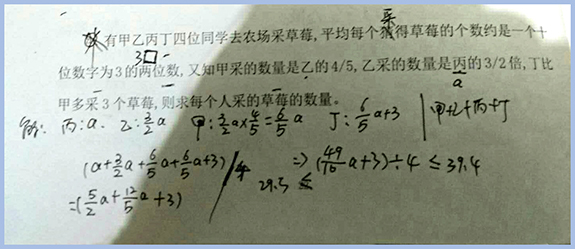 采
有甲乙丙丁四位同学去农场采草莓,平均每个得草莓的个数约是一个十
3□
位数字为3的两位数,又知甲采的数量是乙的4/5,乙采的数量是丙的3/2倍,丁比
a
甲多采3个草莓,则求每个人采的草莓的数量。
解: 丙:a. 乙:3/2 a 甲:3/2 a×4/5=6/5 a 丁:6/5 a+3 甲+乙+丙+丁
(a+3/2 a+6/5 a+6/5 a+3)/4 => (49/10 a+3)÷4 ≤ 39.4
29.5 ≤
=(5/2 a+12/5 a+3)